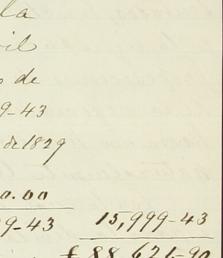 la
vil
s de
9-43
de 1829
0.00
9-43 15,999-43
£ 88,621-90